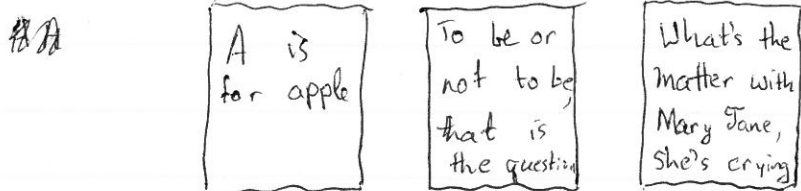 A is
for apple
To be or
not to be,
that is
the question
What's the
matter with
Mary Jane,
She's crying